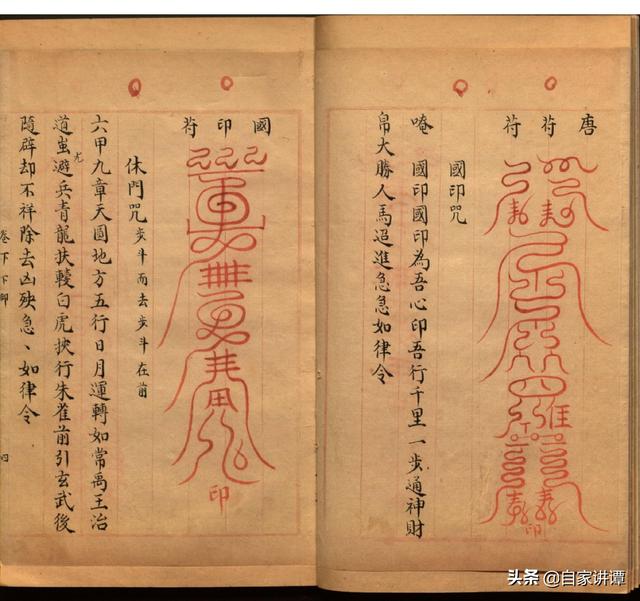 唐符符
國印咒
唵 國印國印為吾心印吾行千里一步通神財
帛大勝人馬迢進急急如律令
國印符
印
休門咒 步斗而去步斗在前
六甲九章天圓地方五行日月運轉如常禹王治
道蚩尤避兵青龍扶轅白虎挾行朱雀前引玄武後
隨辟却不祥除去凶殃急、如律令
卷下下
四
头条 @自家讲谭